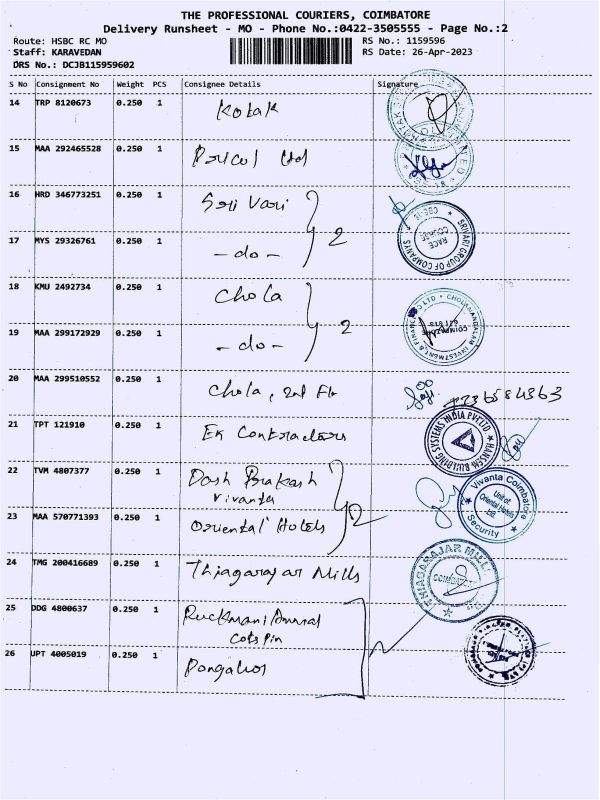 THE PROFESSIONAL COURIERS, COIMBATORE
Delivery Runsheet - MO - Phone No.:0422-3505555 - Page No.:2
Route: HSBC RC MO
RS No.: 1159596
Staff: KARAVEDAN
RS Date: 26-Apr-2023
DRS No.: DCJB115959602
S No Consignment No Weight PCS Consignee Details Signature
14 TRP 8120673 0.250 1 Kotak
15 MAA 292465528 0.250 1 Pricol Ltd
16 HRD 346773251 0.250 1 Sri Vari
2
SRIVARI GROUP OF COMPANYS
RACE COURSE
CBE-18
17 MYS 29326761 0.250 1 -do-
18 KMU 2492734 0.250 1 Chola
2
19 MAA 299172929 0.250 1 -do-
20 MAA 299510552 0.250 1 Chola, 2nd Flr
21 TPT 121910 0.250 1 EK Contractors
BUILDING SYSTEMS INDIA PVT LTD
22 TVM 4807377 0.250 1 Dash Prakash
Vivanta
2
Vivanta Coimbatore
Unit of:
Oriental Hotels
Ltd.
Security
23 MAA 570771393 0.250 1 Oriental Hotels
24 TMG 200416689 0.250 1 Thiagarajar Mills
THIAGARAJAR MILL
COIMBATORE
25 DDG 4800637 0.250 1 Ruckmani Ammal
Cotspin
26 UPT 4005019 0.250 1